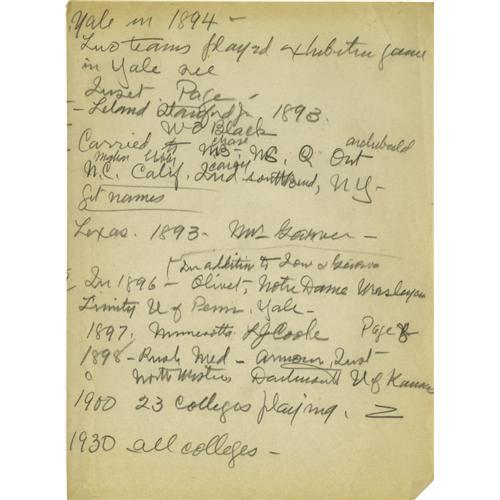 Yale in 1894 -
Two teams played exhibition game
in Yale see
Inset. Page -
- Leland Stanford Jr 1893.
W O Black
Carried to Mo - Mc. Q. Ont archibald
N.C. Calif. Ind South Bend, N.Y -
Get names
Texas. 1893 - Mrs
In addition to Iowa & Geneva
In 1896 - Olivet, Notre Dame Wesleyan
Trinity U of Penn. Yale -
1897. Minnesota LJ Cooke Page 8
1898 - Rush Med - Armour Inst -
" North Western Dartmouth U of Kansas
1900 23 colleges playing.
1930 all colleges -